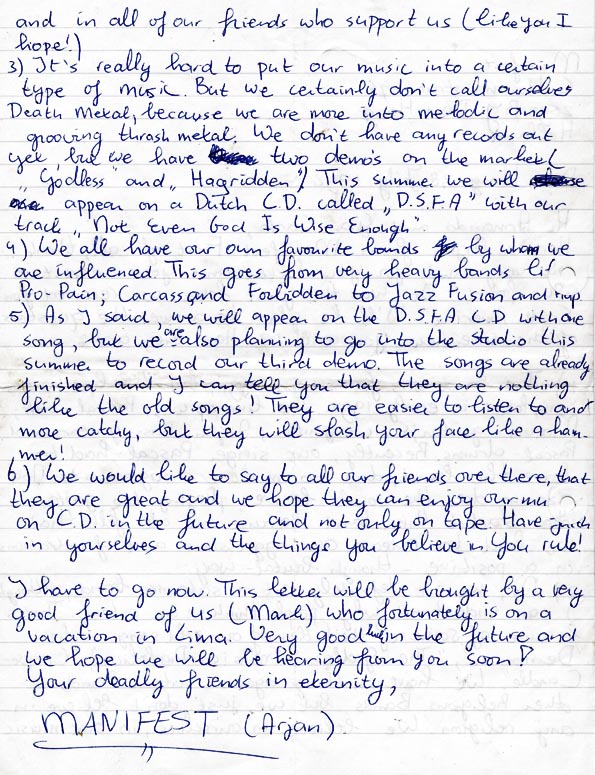 and in all of our friends who support us (like you I
hope!)
3) It's really hard to put our music into a certain
type of music. But we certainly don't call ourselves
Death Metal, because we are more into melodic and
grooving thrash metal. We don't have any records out
yet, but we have two demo's on the market (
„Godless" and „Hagridden") This summer we will
appear on a Dutch C.D. called „D.S.F.A" with our
track „Not Even God Is Wise Enough".
4) We all have our own favourite bands by whom we
are influenced. This goes from very heavy bands
Pro-Pain; Carcass and Forbidden to Jazz Fusion and
5) As I said, we will appear on the D.S.F.A CD with one
song, but we are also planning to go into the studio this
summer to record our third demo. The songs are already
finished and I can tell you that they are nothing
like the old songs! They are easier to listen to and
more catchy, but they will slash your face like a ham-
mer!
6) We would like to say to all our friends over there, that
they are great and we hope they can enjoy our
on C.D. in the future and not only on tape. Have
in yourselves and the things you believe in. You rule!
I have to go now. This letter will be brought by a very
good friend of us (Mark) who fortunately is on a
vacation in Lima. Very good luck in the future and
we hope we will be hearing from you soon!
Your deadly friends in eternity,
MANIFEST (Arjan)